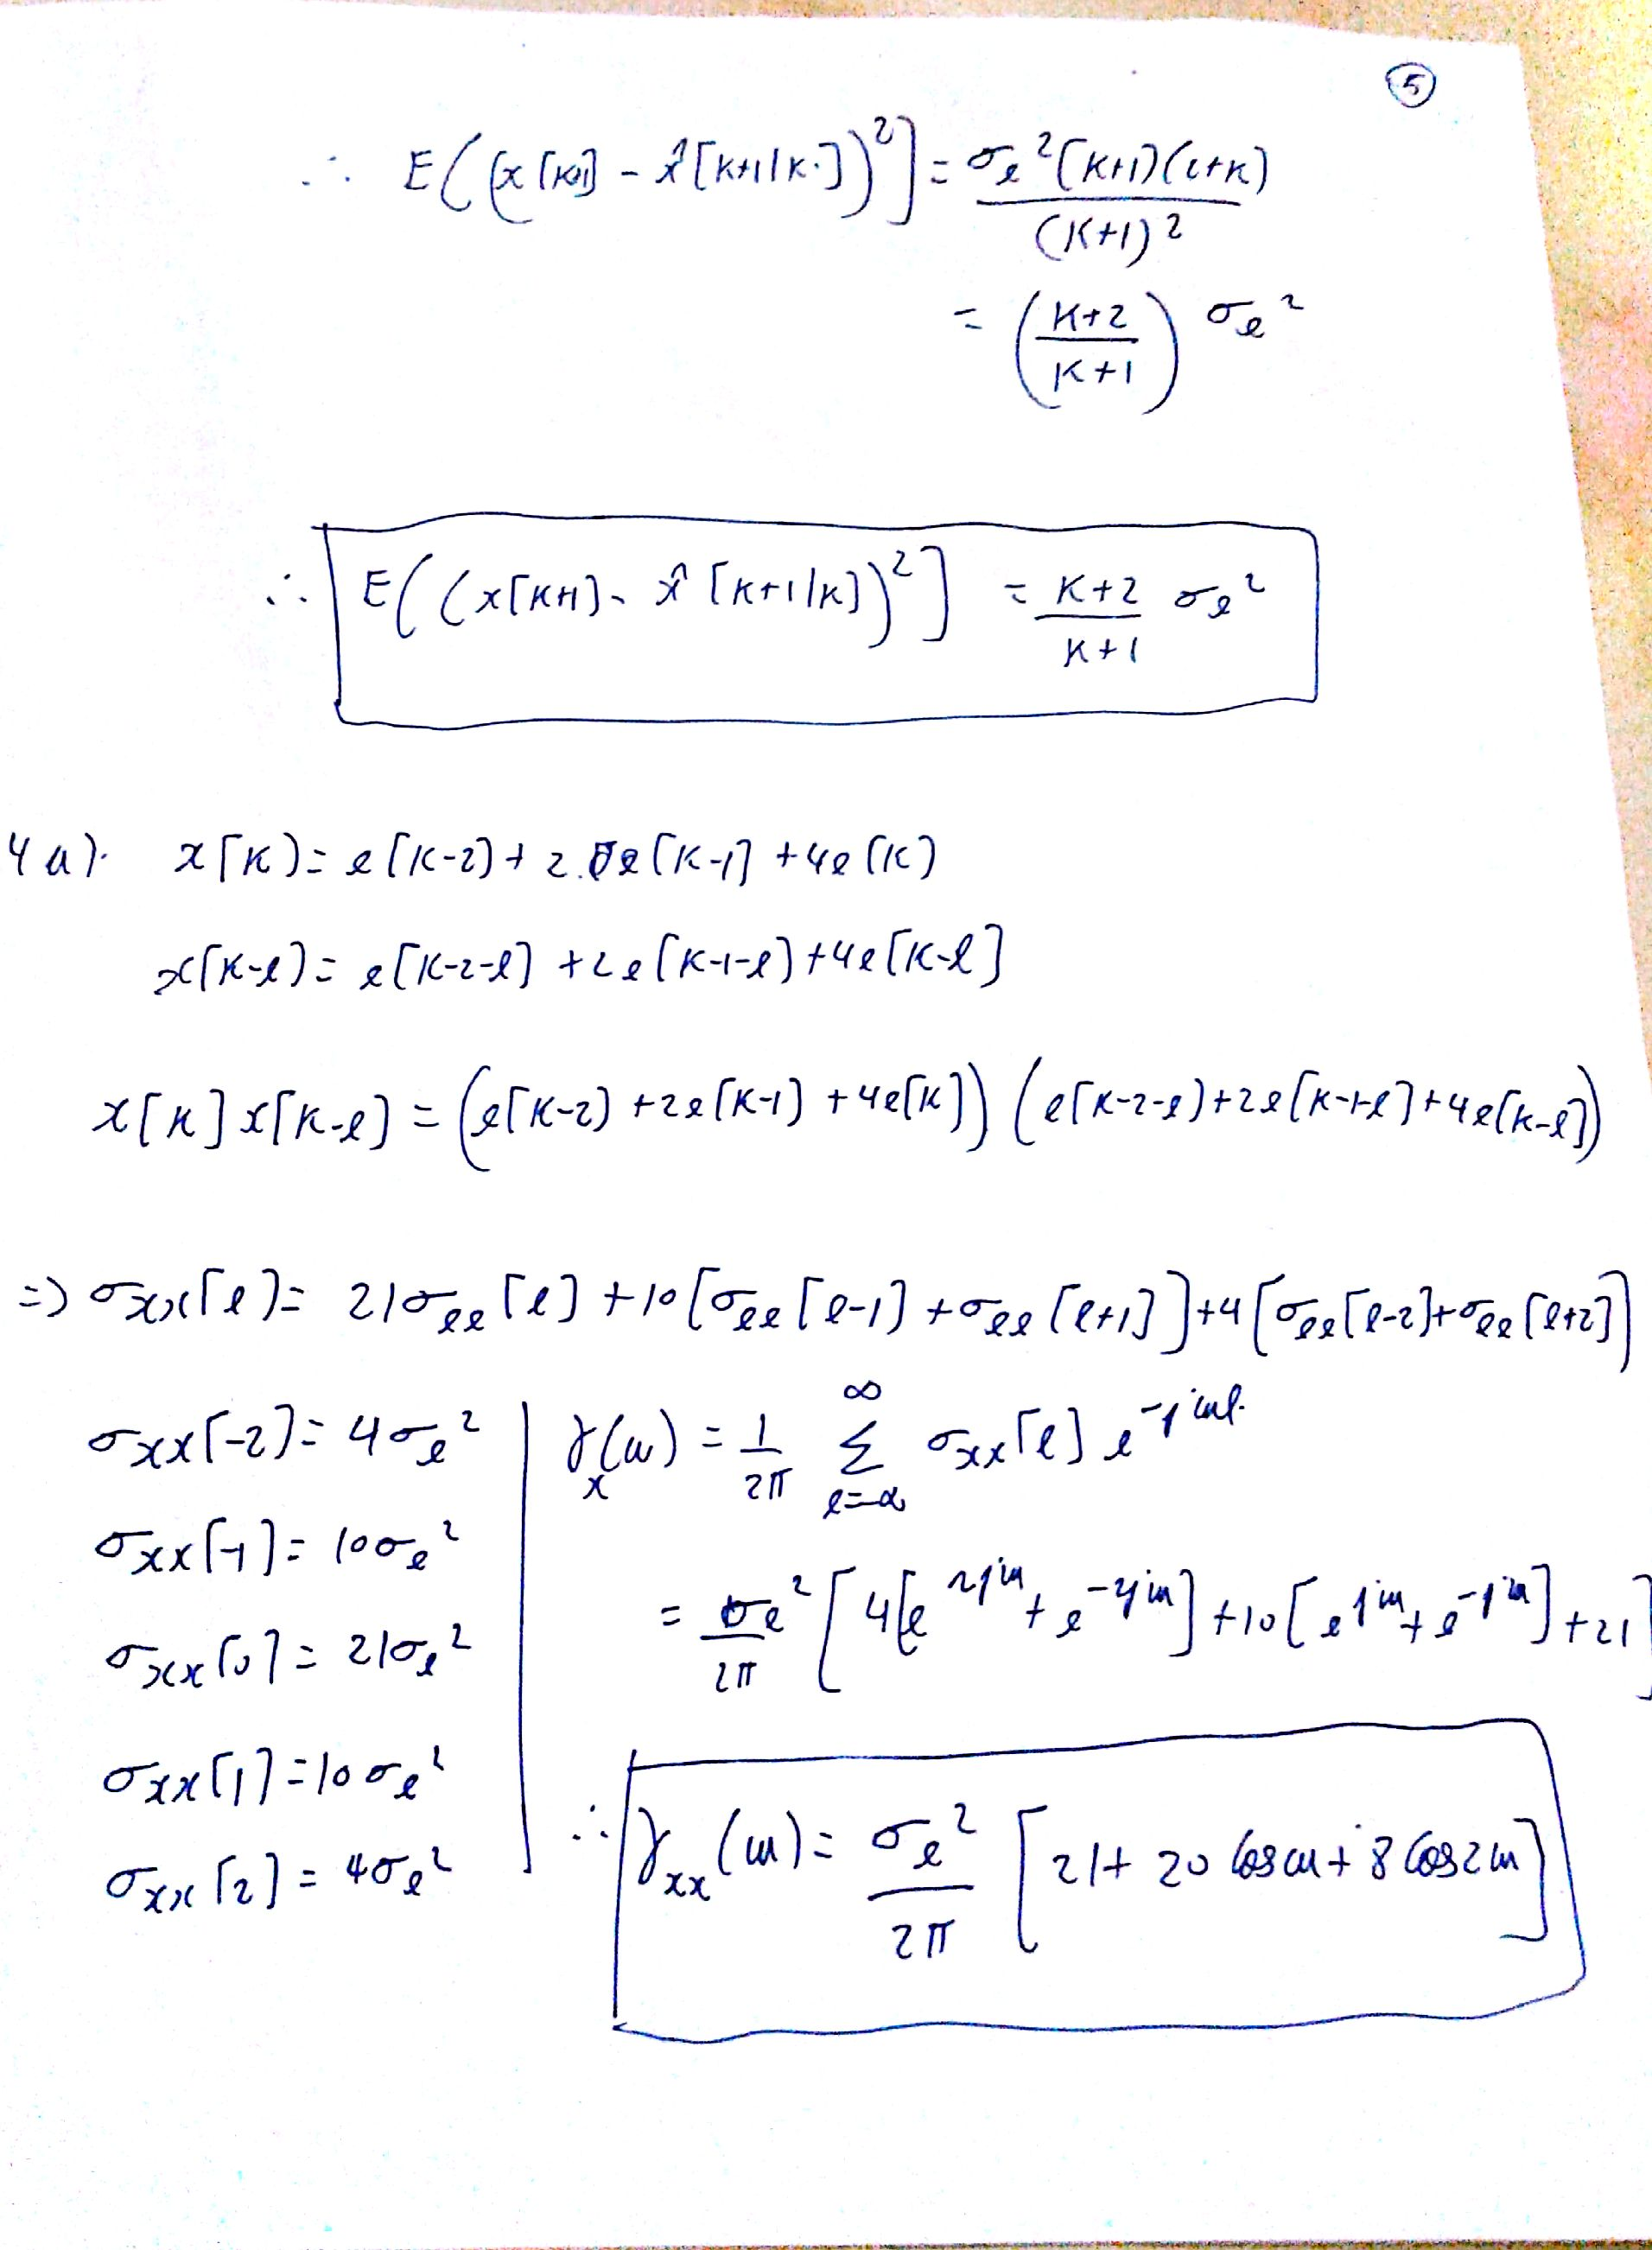 5
∴ E((x[k+1] - x̂[k+1|k])²] = σe²(k+1)(2+k)
(k+1)²
= (k+2 / k+1) σe²
∴ E((x[k+1] - x̂[k+1|k])²] = k+2 / k+1 σe²
4a). x[k] = e[k-2] + 2e[k-1] + 4e[k]
x[k-l] = e[k-2-l] + 2e[k-1-l] + 4e[k-l]
x[k]x[k-l] = (e[k-2] + 2e[k-1] + 4e[k]) (e[k-2-l] + 2e[k-1-l] + 4e[k-l])
=> σxx[l] = 21σee[l] + 10[σee[l-1] + σee[l+1]] + 4[σee[l-2] + σee[l+2]]
σxx[-2] = 4σe²
σxx[-1] = 10σe²
σxx[0] = 21σe²
σxx[1] = 10σe²
σxx[2] = 4σe²
γx(ω) = 1/2π ∞Σl=-∞ σxx[l] e^-jωl
= σe²/2π [4[e^2jω + e^-2jω] + 10[e^jω + e^-jω] + 21]
∴ γxx(ω) = σe²/2π [21 + 20 cos ω + 8 cos 2ω]